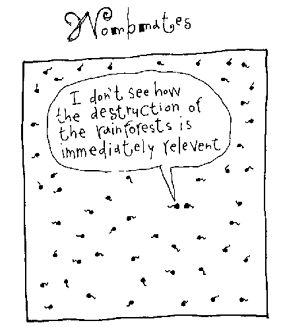 Wombmates
I don't see how
the destruction of
the rainforests is
immediately relevent